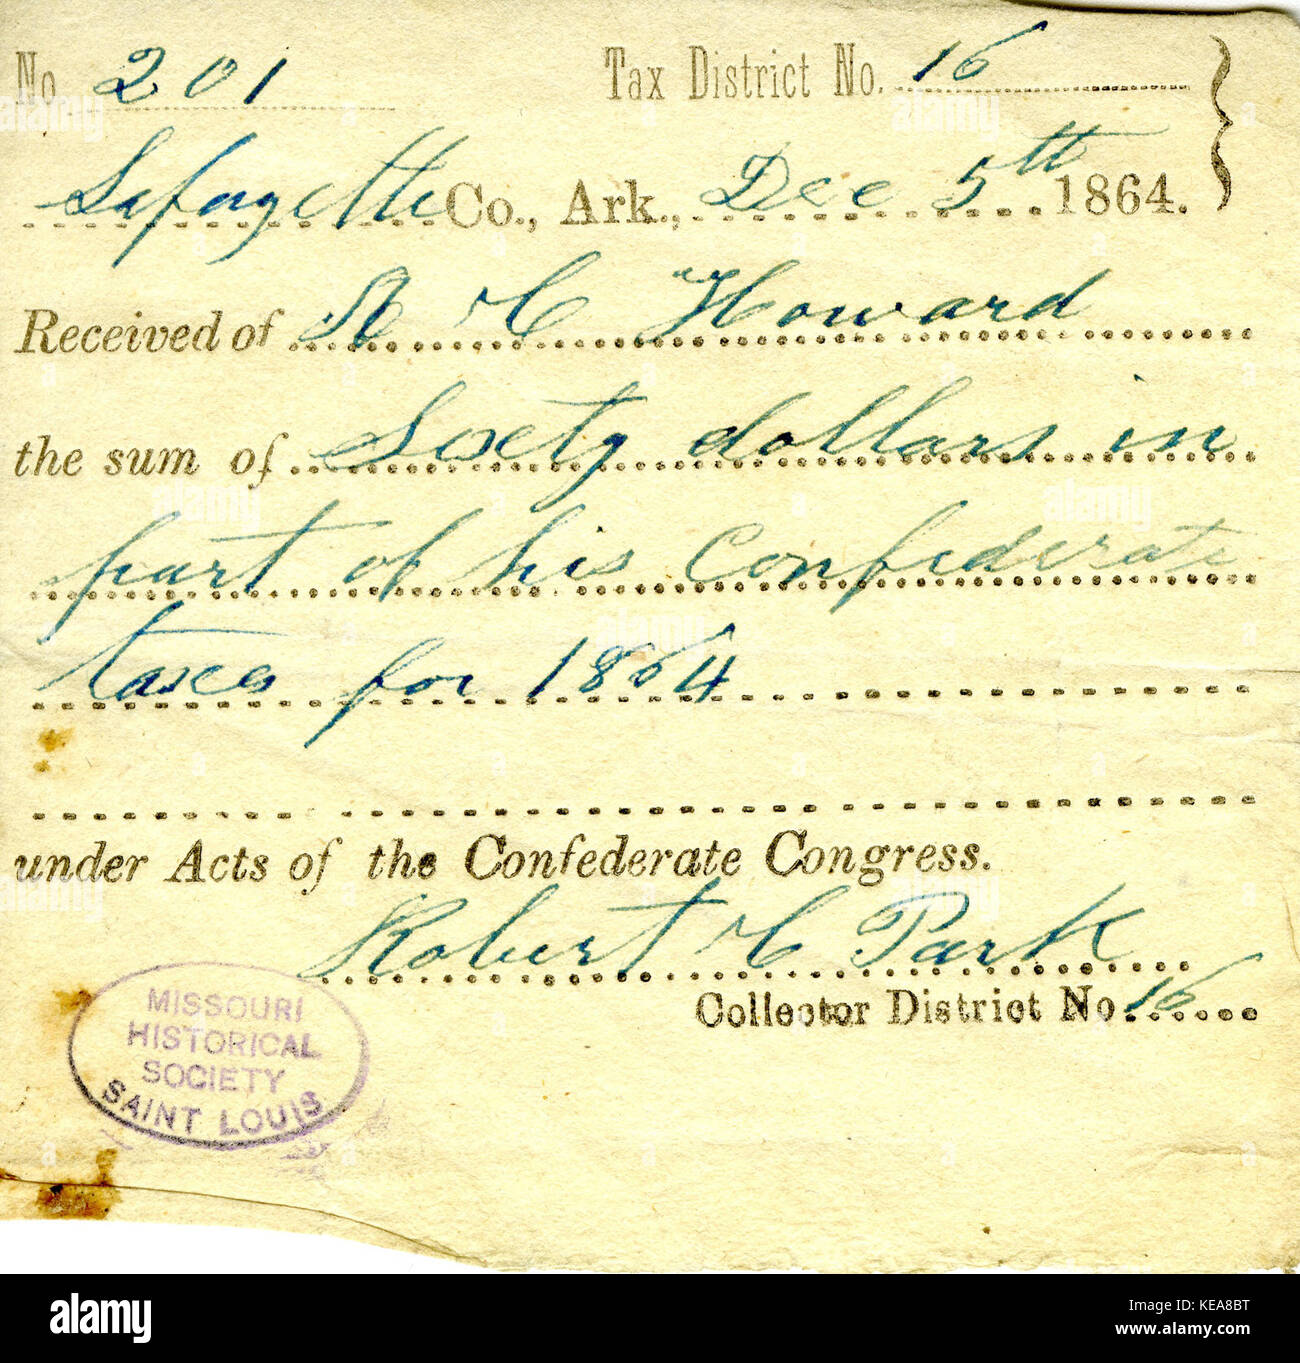 No 201 Tax District No. 16
Lafayette Co., Ark., Dec 5th 1864.
Received of A C Howard
the sum of Sixty dollars in
part of his Confederate
taxes for 1864
under Acts of the Confederate Congress.
Robert C Park
Collector District No. 16
MISSOURI
HISTORICAL
SOCIETY
SAINT LOUIS
alamy
Image ID: KEA8BT
www.alamy.com